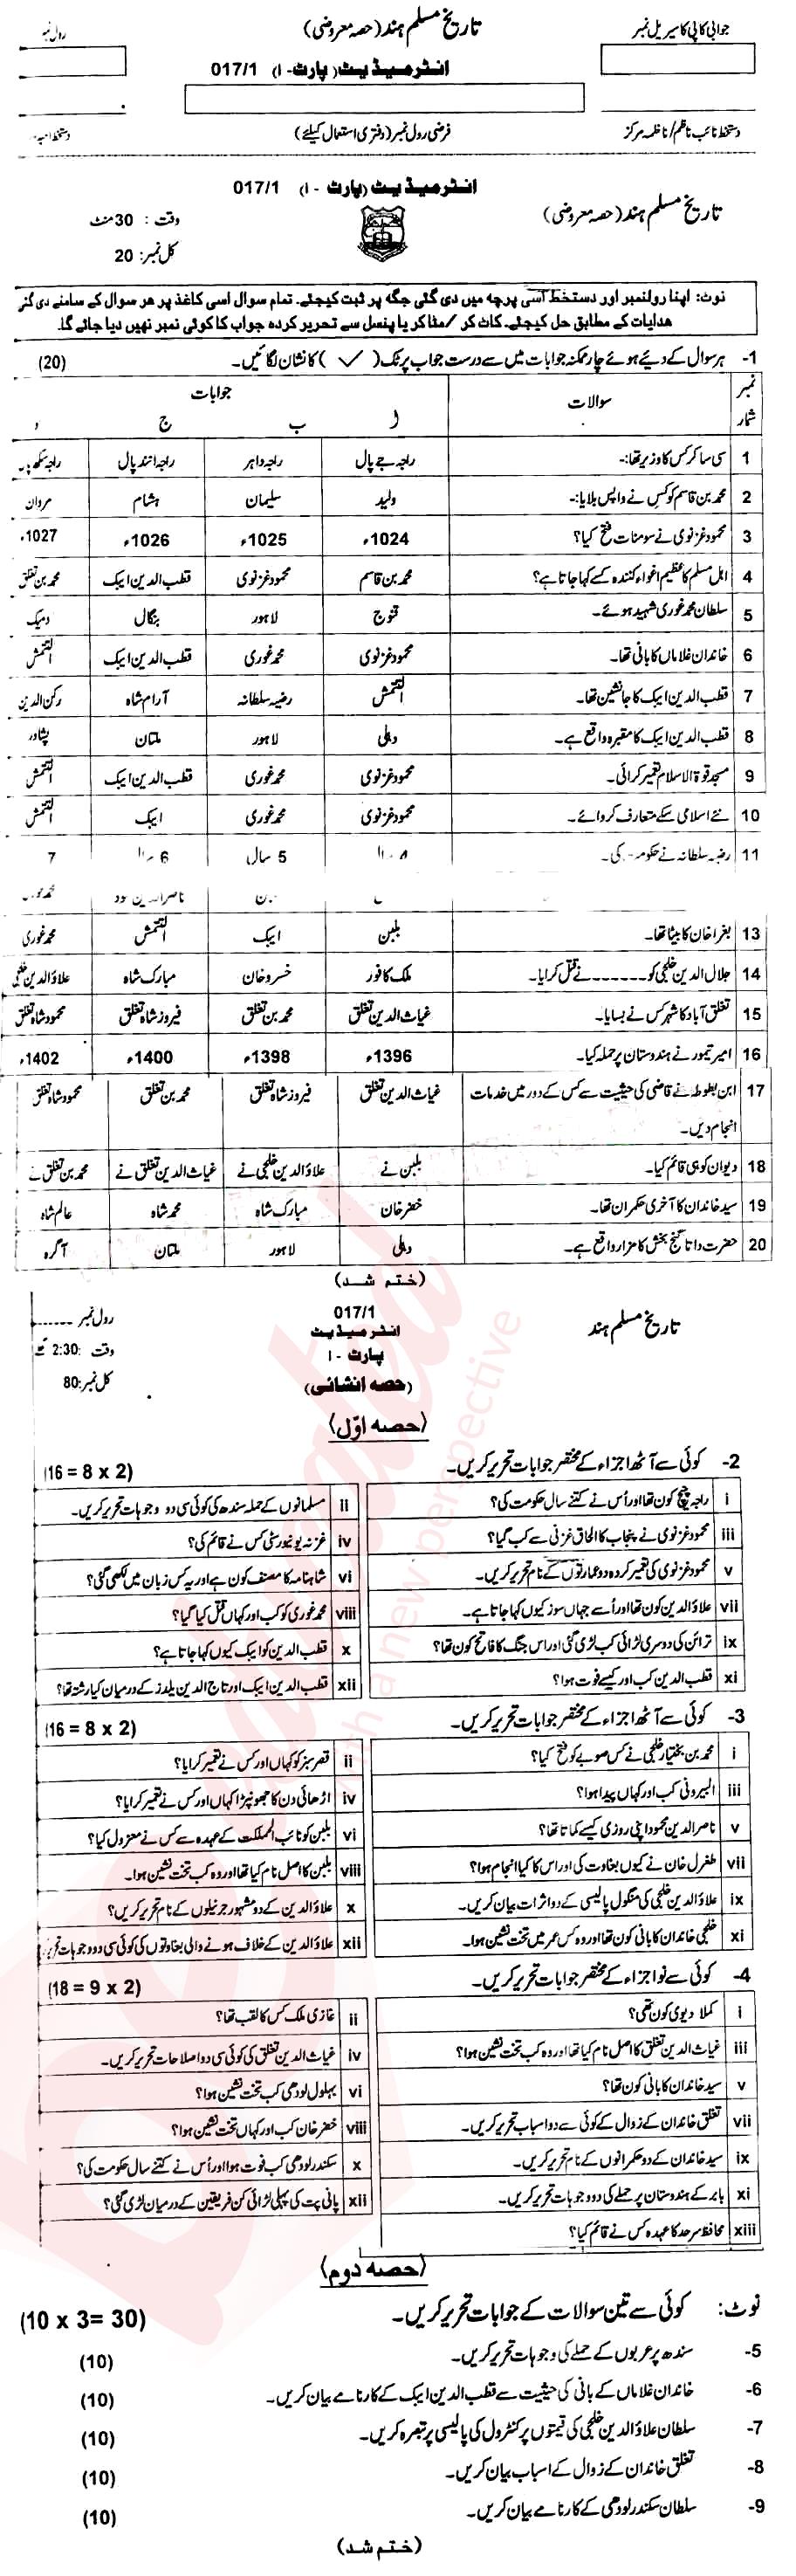 جوابی کاپی کا سیریل نمبر
تاریخ مسلم ہند (حصہ معروضی)
رول نمبر
انٹرمیڈیٹ (پارٹ - I) 017/1
دستخط نائب ناظم/ناظمہ مرکز
فرضی رول نمبر (دفتری استعمال کیلئے)
انٹرمیڈیٹ (پارٹ - I) 017/1
تاریخ مسلم ہند (حصہ معروضی)
وقت : 30 منٹ
کل نمبر: 20
نوٹ: اپنا رولنمبر اور دستخط اسی پرچہ میں دی گئی جگہ پر ثبت کیجئے۔ تمام سوال اسی کاغذ پر ہر سوال کے سامنے دی گئی
ہدایات کے مطابق حل کیجئے۔ کاٹ کر /مٹا کر یا پنسل سے تحریر کردہ جواب کا کوئی نمبر نہیں دیا جائے گا۔
1- ہر سوال کے دیئے ہوئے چار ممکنہ جوابات میں سے درست جواب پر ٹک (✓) کا نشان لگائیں۔ (20)
نمبر شمار سوالات جوابات
ا ب ج د
1 سی ساکر کس کا وزیر تھا:- راجہ جے پال راجہ داہر راجہ انند پال
2 محمد بن قاسم کو کس نے واپس بلایا:- ولید سلیمان ہشام مروان
3 محمود غزنوی نے سومنات فتح کیا؟ 1024ء 1025ء 1026ء 1027ء
4 اہل مسلم کا عظیم اغواء کنندہ کسے کہا جاتا ہے؟ محمد بن قاسم محمود غزنوی قطب الدین ایبک محمد بن تغلق
5 سلطان محمد غوری شہید ہوئے۔ قنوج لاہور بنگال دمیک
6 خاندان غلاماں کا بانی تھا۔ محمود غزنوی محمد غوری قطب الدین ایبک التمش
7 قطب الدین ایبک کا جانشین تھا۔ التمش رضیہ سلطانہ آرام شاہ رکن الدین
8 قطب الدین ایبک کا مقبرہ واقع ہے۔ دہلی لاہور ملتان پشاور
9 مسجد قوۃ الاسلام تعمیر کرائی۔ محمود غزنوی محمد غوری قطب الدین ایبک التمش
10 نئے اسلامی سکے متعارف کروائے۔ محمود غزنوی محمد غوری ایبک التمش
11 رضیہ سلطانہ نے حکومت کی۔ 5 سال 6 7
13 بغرا خان کا بیٹا تھا۔ بلبن ایبک التمش محمد غوری
14 جلال الدین خلجی کو ------ نے قتل کرایا۔ ملک کافور خسرو خان مبارک شاہ علاؤ الدین خلجی
15 تغلق آباد کا شہر کس نے بسایا۔ غیاث الدین تغلق محمد بن تغلق فیروز شاہ تغلق محمود شاہ تغلق
16 امیر تیمور نے ہندوستان پر حملہ کیا۔ 1396ء 1398ء 1400ء 1402ء
17 ابن بطوطہ نے قاضی کی حیثیت سے کس کے دور میں خدمات غیاث الدین تغلق فیروز شاہ تغلق محمد بن تغلق محمود شاہ تغلق
انجام دیں۔
18 دیوان کوہی قائم کیا۔ بلبن نے علاؤ الدین خلجی نے غیاث الدین تغلق نے محمد بن تغلق نے
19 سید خاندان کا آخری حکمران تھا۔ خضر خان مبارک شاہ محمد شاہ عالم شاہ
20 حضرت داتا گنج بخش کا مزار واقع ہے۔ دہلی لاہور ملتان آگرہ
(ختم شد)
017/1
رول نمبر ------
تاریخ مسلم ہند
انٹرمیڈیٹ
پارٹ - I
وقت: 2:30
(حصہ انشائی)
کل نمبر: 80
(حصہ اوّل)
2- کوئی سے آٹھ اجزاء کے مختصر جوابات تحریر کریں۔ (16 = 8 x 2)
i راجہ چچ کون تھا اور اُس نے کتنے سال حکومت کی؟
ii مسلمانوں کے حملہ سندھ کی کوئی سی دو وجوہات تحریر کریں۔
iii محمود غزنوی نے پنجاب کا الحاق غزنی سے کب گیا؟
iv غزنہ یونیورسٹی کس نے قائم کی؟
v محمود غزنوی کی تعمیر کردہ دو عمارتوں کے نام تحریر کریں۔
vi شاہنامہ کا مصنف کون ہے اور یہ کس زبان میں لکھی گئی؟
vii علاؤ الدین کون تھا اور اُسے جہاں سوز کیوں کہا جاتا ہے۔
viii محمد غوری کو کب اور کہاں قتل کیا گیا؟
ix ترائن کی دوسری لڑائی کب لڑی گئی اور اس جنگ کا فاتح کون تھا؟
x قطب الدین کو ایبک کیوں کہا جاتا ہے؟
xi قطب الدین کب اور کیسے فوت ہوا؟
xii قطب الدین ایبک اور تاج الدین یلدز کے درمیان کیا رشتہ تھا؟
3- کوئی سے آٹھ اجزاء کے مختصر جوابات تحریر کریں۔ (16 = 8 x 2)
i محمد بن بختیار خلجی نے کس صوبے کو فتح کیا؟
ii قصر سبز کو کہاں اور کس نے تعمیر کرایا؟
iii البیرونی کب اور کہاں پیدا ہوا؟
iv اڑھائی دن کا جھونپڑا کہاں اور کس نے تعمیر کرایا؟
v ناصر الدین محمود اپنی روزی کیسے کماتا تھا؟
vi بلبن کو نائب المملکت کے عہدہ سے کس نے معزول کیا؟
vii طغرل خان نے کیوں بغاوت کی اور اس کا کیا انجام ہوا؟
viii بلبن کا اصل نام کیا تھا اور وہ کب تخت نشین ہوا۔
ix علاؤ الدین خلجی کی منگول پالیسی کے دو اثرات بیان کریں۔
x علاؤ الدین کے دو مشہور جرنیلوں کے نام تحریر کریں؟
xi خلجی خاندان کا بانی کون تھا اور وہ کس عمر میں تخت نشین ہوا۔
xii علاؤ الدین کے خلاف ہونے والی بغاوتوں کی کوئی سی دو وجوہات تحریر
4- کوئی سے نو اجزاء کے مختصر جوابات تحریر کریں۔ (18 = 9 x 2)
i کملا دیوی کون تھی؟
ii غازی ملک کس کا لقب تھا؟
iii غیاث الدین تغلق کا اصل نام کیا تھا اور وہ کب تخت نشین ہوا؟
iv غیاث الدین تغلق کی کوئی سی دو اصلاحات تحریر کریں۔
v سید خاندان کا بانی کون تھا؟
vi بہلول لودھی کب تخت نشین ہوا؟
vii تغلق خاندان کے زوال کے کوئی سے دو اسباب تحریر کریں۔
viii خضر خان کب اور کہاں تخت نشین ہوا؟
ix سید خاندان کے دو حکمرانوں کے نام تحریر کریں۔
x سکندر لودھی کب فوت ہوا اور اُس نے کتنے سال حکومت کی؟
xi بابر کے ہندوستان پر حملے کی دو وجوہات تحریر کریں۔
xii پانی پت کی پہلی لڑائی کن فریقین کے درمیان لڑی گئی؟
xiii محافظ سرحد کا عہدہ کس نے قائم کیا؟
(حصہ دوم)
نوٹ: کوئی سے تین سوالات کے جوابات تحریر کریں۔ (10 x 3= 30)
5- سندھ پر عربوں کے حملے کی وجوہات تحریر کریں۔ (10)
6- خاندان غلاماں کے بانی کی حیثیت سے قطب الدین ایبک کے کارنامے بیان کریں۔ (10)
7- سلطان علاؤ الدین خلجی کی قیمتوں پر کنٹرول کی پالیسی پر تبصرہ کریں۔ (10)
8- تغلق خاندان کے زوال کے اسباب بیان کریں۔ (10)
9- سلطان سکندر لودھی کے کارنامے بیان کریں۔ (10)
(ختم شد)
with a new perspective